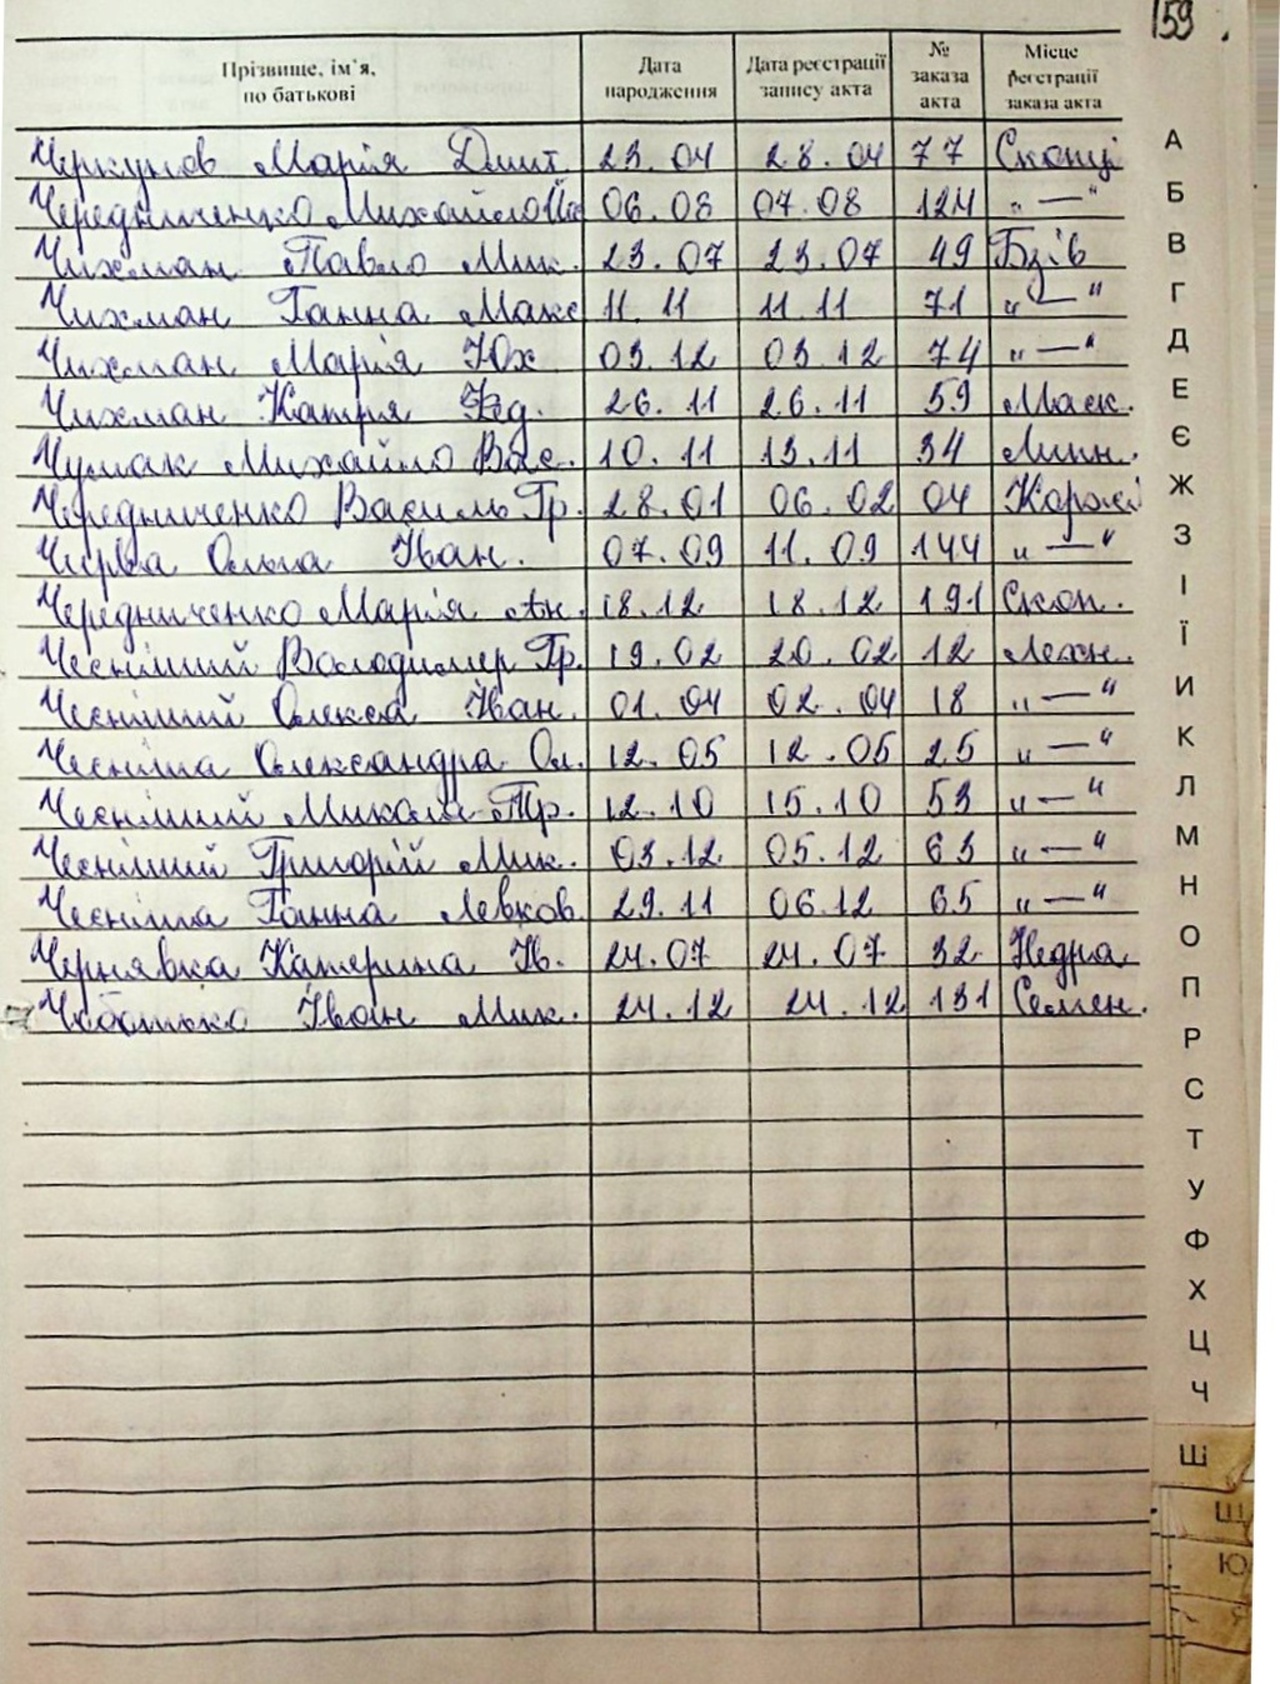 159.
Прізвище, ім'я, по батькові Дата народження Дата реєстрації запису акта № заказа акта Місце реєстрації заказа акта
Черкунов Марія Дмит. 23.04 28.04 77 Скопці
Чередниченко Михайло 06.08 07.08 124 „—“
Чихман Павло Мик. 23.07 23.07 49 Бзів
Чихман Ганна Макс 11.11 11.11 71 „—“
Чихман Марія Юх 03.12 03.12 74 „—“
Чихман Катря Фед. 26.11 26.11 59 Маск.
Чумак Михайло Вас. 10.11 13.11 34 Лип.
Чередниченко Василь Гр. 28.01 06.02 04 Коржі
Чирва Ольга Іван. 07.09 11.09 144 „—“
Чередниченко Марія Ан. 18.12 18.12 191 Скоп.
Чесніший Володимер Гр. 19.02 20.02 12 Лехн.
Чесніший Олекса Іван. 01.04 02.04 18 „—“
Чесніша Олександра Ол. 12.05 12.05 25 „—“
Чесніший Микола Гр. 12.10 15.10 53 „—“
Чесніший Григорій Мик. 03.12 05.12 63 „—“
Чесніша Ганна Левков. 29.11 06.12 65 „—“
Чернявка Катерина Ів. 24.07 24.07 32 Недра
Чоботько Іван Мик. 24.12 24.12 131 Семен.
А
Б
В
Г
Д
Е
Є
Ж
З
І
Ї
И
К
Л
М
Н
О
П
Р
С
Т
У
Ф
Х
Ц
Ч
Ш
Щ
Ю
Я